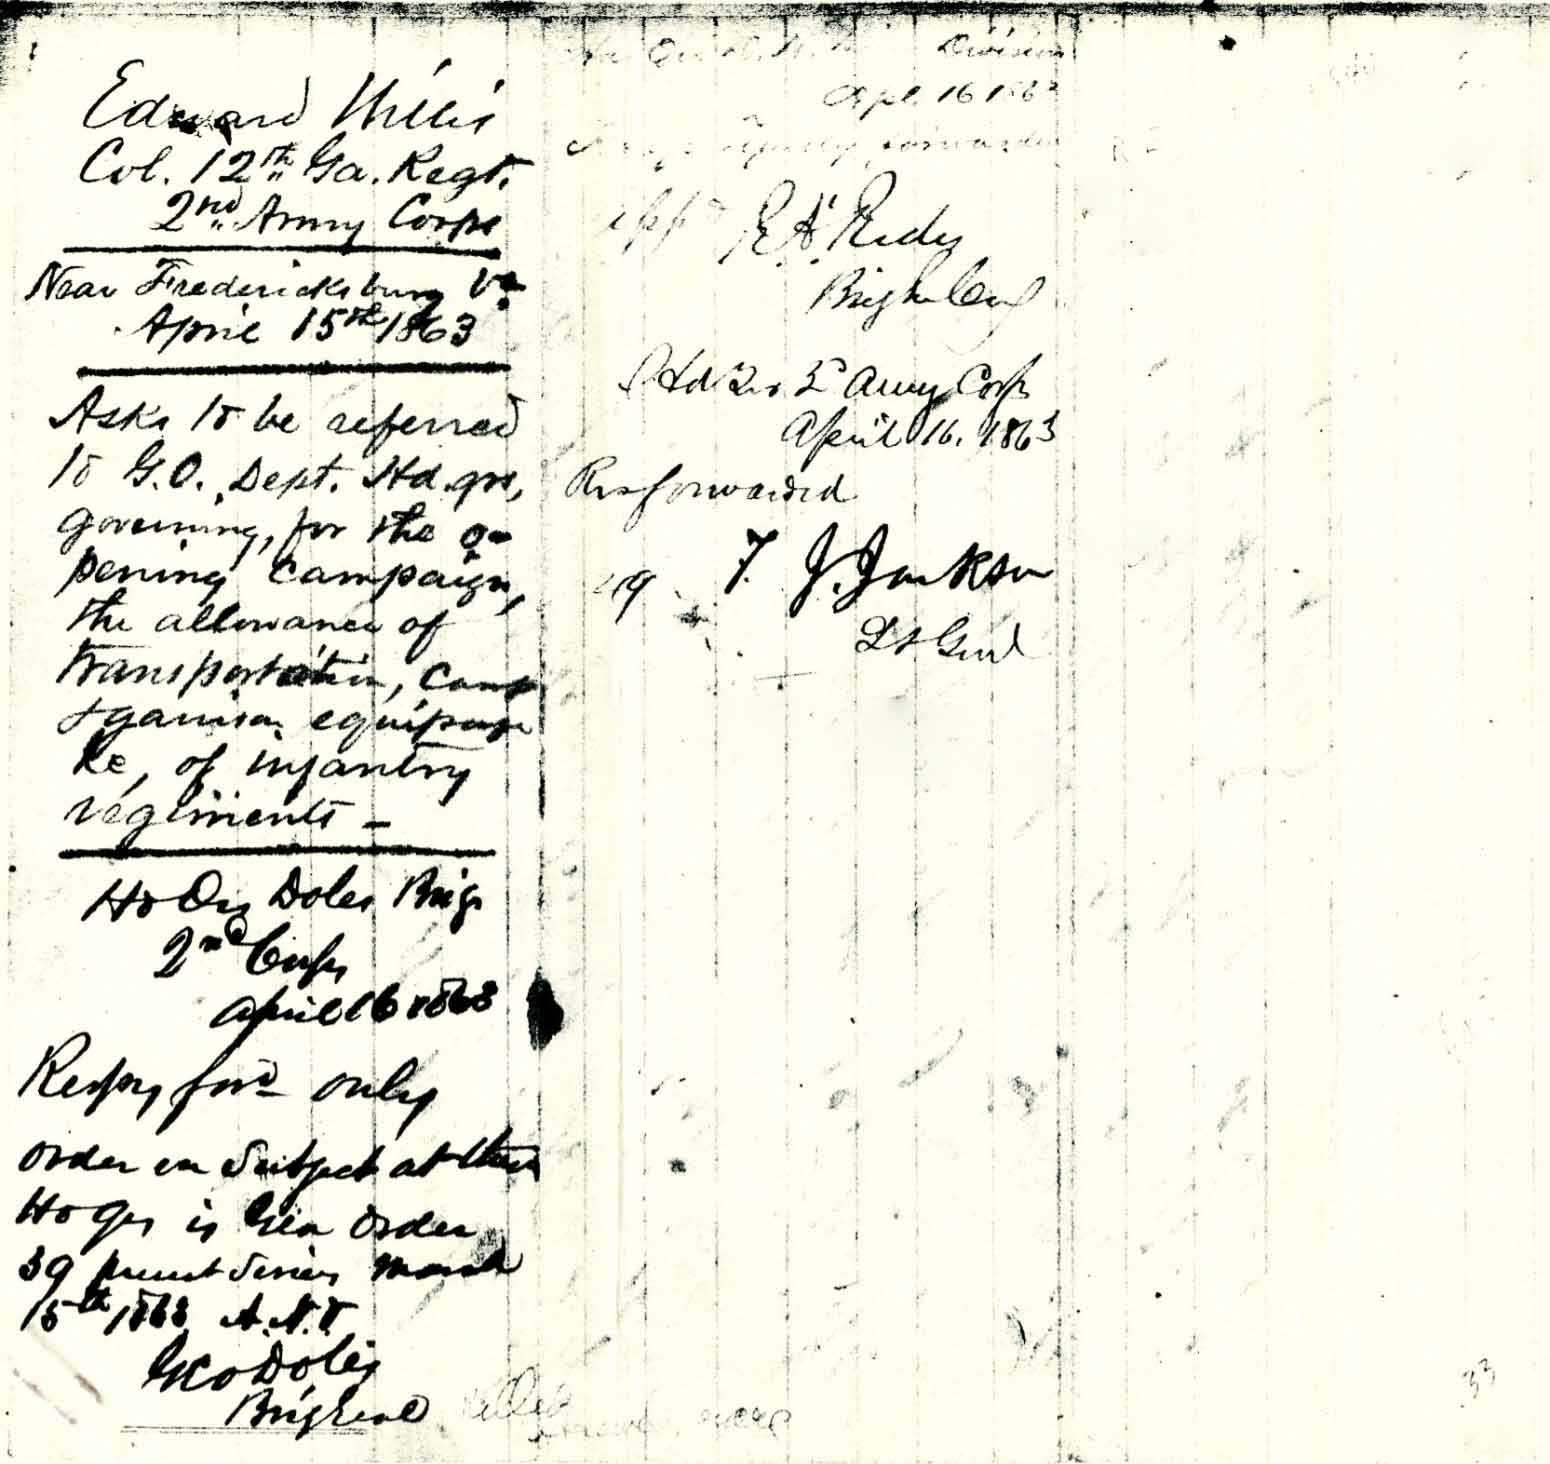 Edward Willis
Col. 12th Ga. Regt.
2nd Army Corps
Near Fredericksburg Va.
April 15th 1863
Asks to be referred
to G.O. Dept. Hd.qrs,
governing, for the o-
pening campaign,
the allowance of
transportation, camp
& garrison equipage
&c, of infantry
regiments -
Hd Qrs Doles Brig
2nd Corps
April 16 1863
Respy ford only
order on subject at these
Hd qrs is Gen order
39 present series March
15th 1863 A.N.V.
Geo Doles
Brig Genl
Division
Apl. 16 1863
forwarded
R E
R E Rodes
Brig Genl
Hd Qrs 2d Army Corps
April 16. 1863
Res forwarded
T. J. Jackson
Lt Genl
33